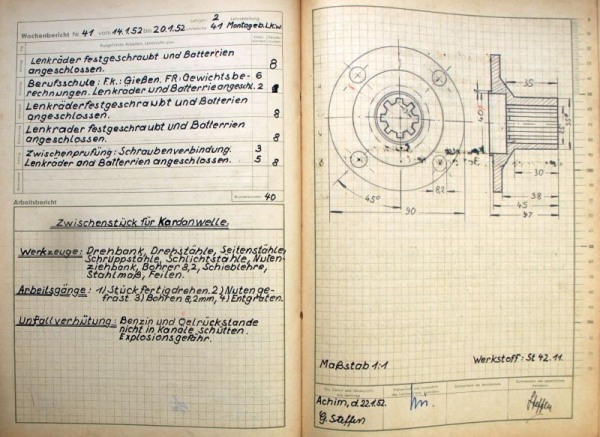 Wochenbericht Nr. 41 vom 14.1.52 bis 20.1.52
2
41 Montage b. L.K.W.
Lenkräder festgeschraubt und Batterien
angeschlossen. 8
Berufsschule: F.k.: Gießen. FR: Gewichtsbe- 6
rechnungen. Lenkräder und Batterrie angeschl. 2 8
Lenkräder festgeschraubt und Batterien
angeschlossen. 8
Lenkrader festgeschraubt und Batterien
angeschlossen. 8
Zwischenprüfung: Schraubenverbindung. 3
Lenkräder und Batterrien angeschlossen. 5 8
40
Arbeitsbericht
Zwischenstück für Kardanwelle.
Werkzeuge: Drehbank, Drehstähle, Seitenstähle,
Schruppstähle, Schlichtstähle, Nuten-
ziehbank, Bohrer 8,2, Schieblehre,
Stahlmaß, Feilen.
Arbeitsgänge: 1) Stück fertigdrehen. 2) Nuten ge-
fräst 3) Bohren 8,2mm, 4) Entgraten.
Unfallverhütung: Benzin und Oelrückstande
nicht in Kanäle schütten.
Explosionsgefahr.
35
40
30
38
45
47
45°
8,2
90
Maßstab 1:1
Werkstoff: St 42.11
Achim, d. 22.1.52.
G. Steffen
Steffen